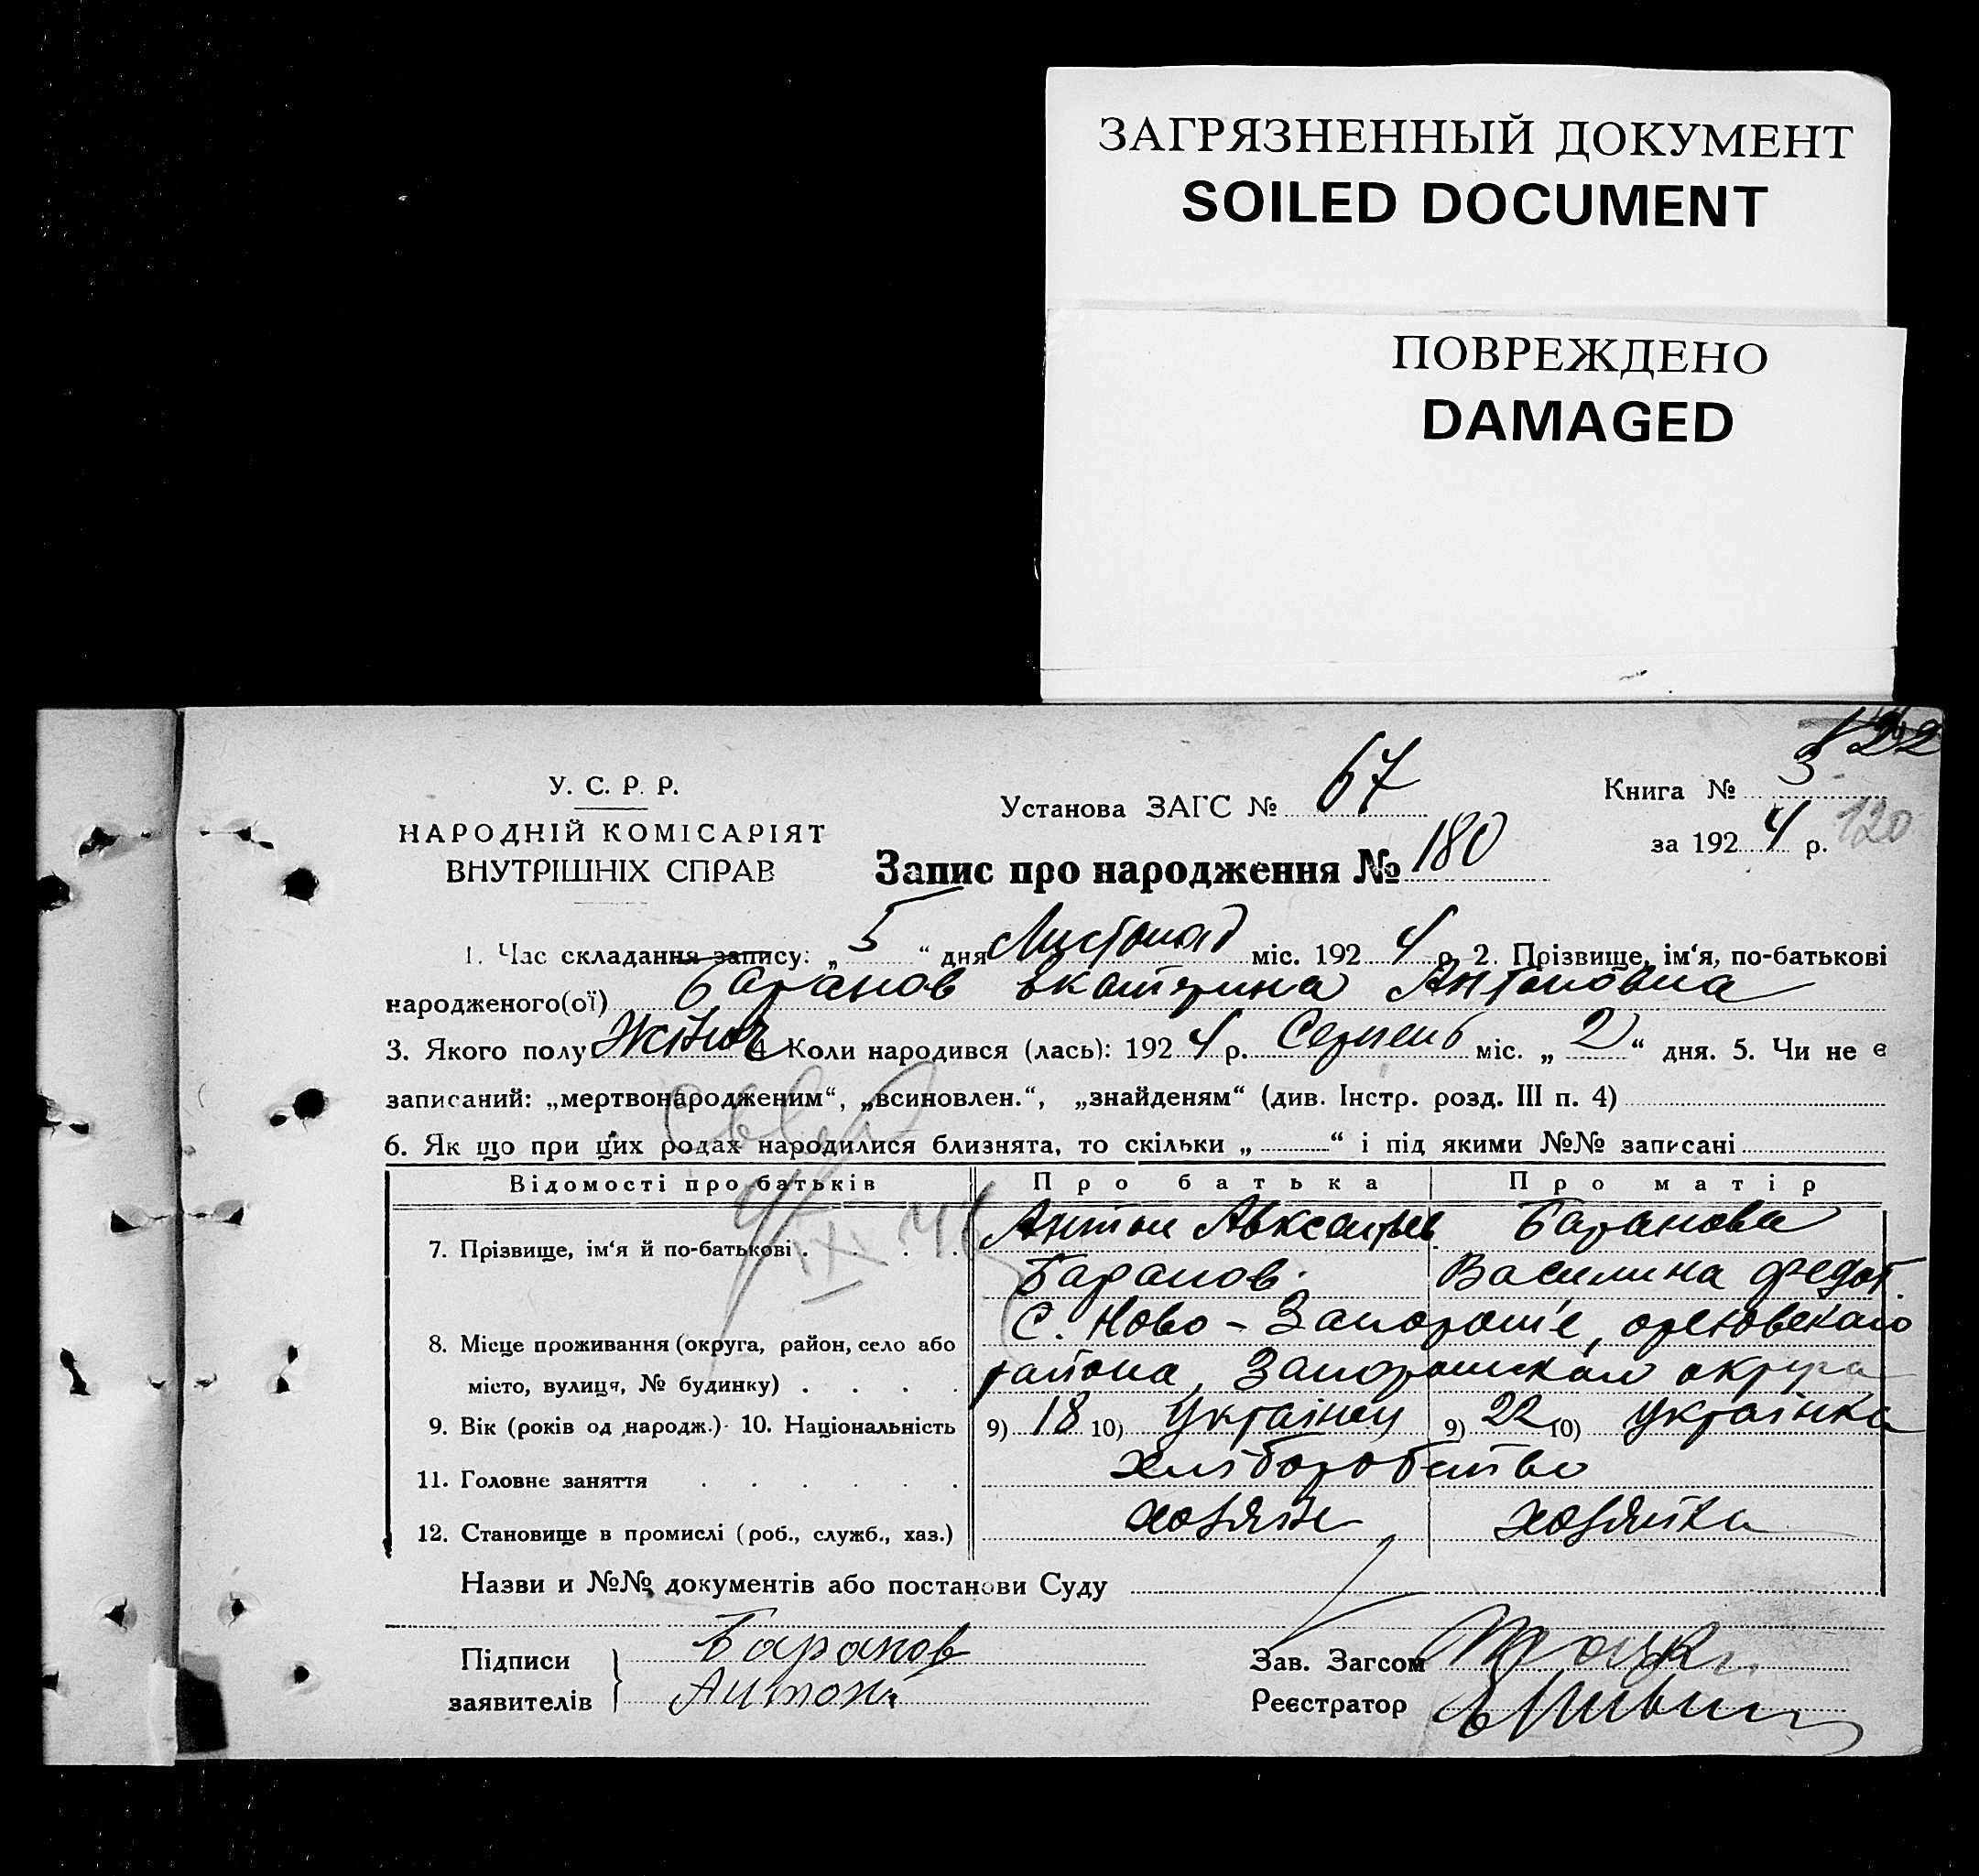 ЗАГРЯЗНЕННЫЙ ДОКУМЕНТ
SOILED DOCUMENT
ПОВРЕЖДЕНО
DAMAGED
122
У. С. Р. Р.
НАРОДНІЙ КОМІСАРІЯТ
ВНУТРІШНІХ СПРАВ
Установа ЗАГС № 67
Книга № 3
за 1924 р. 120
Запис про народження № 180
1. Час складання запису: „5“ дня Листопад міс. 1924 р. 2. Прізвище, ім‘я, по-батькові
народженого(ої) Баранов Екатерина Антоновна
3. Якого полу Жіноч 4 Коли народився (лась): 1924 р. Серпень міс. „2“ дня. 5. Чи не є
записаний: „мертвонародженим“, „всиновлен.“, „знайденям“ (див. Інстр. розд. III п. 4)
6. Як що при цих родах народилися близнята, то скільки „ “ і під якими №№ записані
Відомості про батьків Про батька Про матір
7. Прізвище, ім‘я й по-батькові . . . Антон Авксентьев. Баранова
Баранов. Василина Федот.
8. Місце проживання (округа, район, село або С. Ново-Запорож'е, ореховского
місто, вулиця, № будинку) . . . . района, Запорожской округа
9. Вік (років од народж.) 10. Національність 9) 18 10) Українец 9) 22 10) Українка
11. Головне заняття . . . . . . хліборобство
12. Становище в промислі (роб., служб., хаз.) хозяїн хозяйка
Назви и №№ документів або постанови Суду
Підписи заявителів } Баранов
Антон
Зав. Загсом
Реєстратор